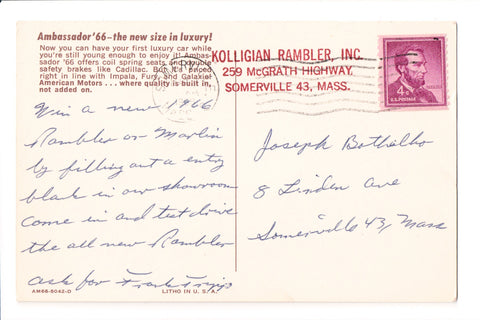 Ambassador '66—the new size in luxury!
Now you can have your first luxury car while
you're still young enough to enjoy it! Ambas-
sador '66 offers coil spring seats and double
safety brakes like Cadillac. But it's priced
right in line with Impala, Fury, and Galaxie!
American Motors . . . where quality is built in,
not added on.
KOLLIGIAN RAMBLER, INC.
259 McGRATH HIGHWAY,
SOMERVILLE 43, MASS.
4¢
U.S. POSTAGE
Win a new 1966
Rambler or Marlin
by filling out a entry
blank in our showroom
Come in and test drive
the all new Rambler
ask for Frank
Joseph Bothelho
8 Linden Ave
Somerville 43, Mass
AM66-8042-D
LITHO IN U. S. A.